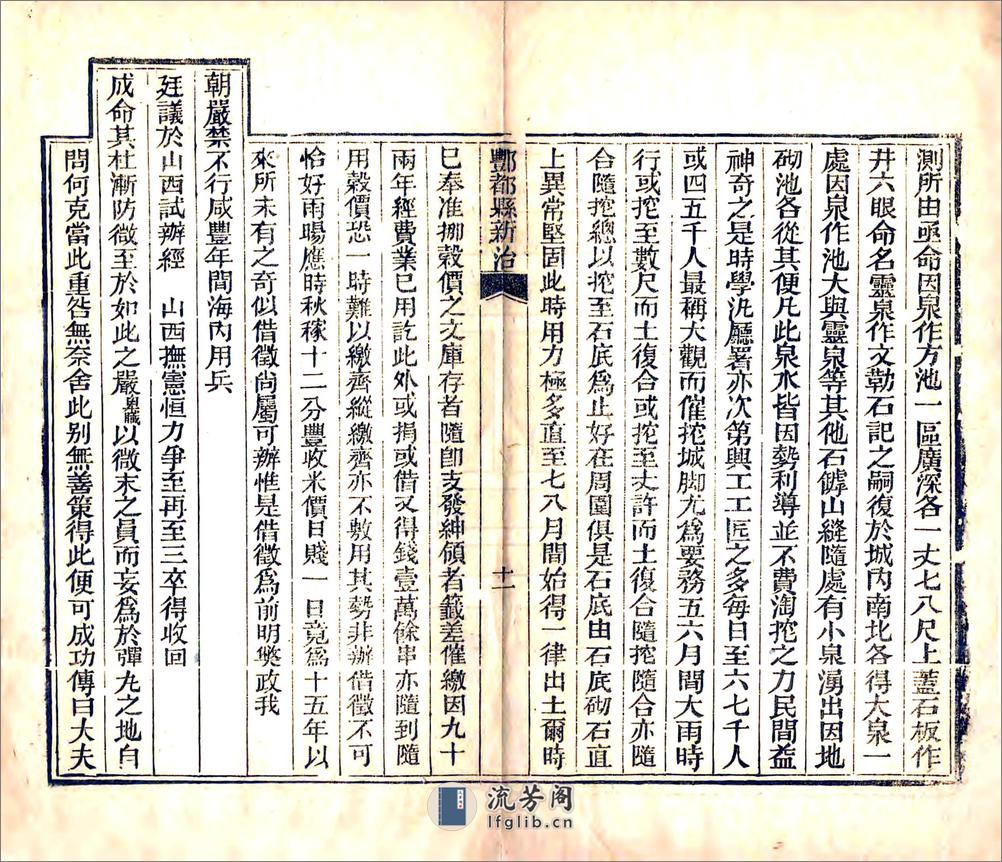 測所由亟命因泉作方池一區廣深各一丈七八尺上蓋石板作
井六眼命名靈泉作文勒石記之嗣復於城內南北各得大泉一
處因泉作池大與靈泉等其他石罅山縫隨處有小泉湧出因地
砌池各從其便凡此泉水皆因勢利導並不費淘挖之力民間益
神奇之是時學汛廳署亦次第興工工匠之多每日至六七千人
或四五千人最稱大觀而催挖城脚尤為要務五六月間大雨時
行或挖至數尺而土復合或挖至丈許而土復合隨挖隨合亦隨
合隨挖總以挖至石底為止好在周圍俱是石底由石底砌石直
上異常堅固此時用力極多直至七八月間始得一律出土爾時
酆都縣新治
十一
已奉准挪穀價之文庫存者隨卽支發紳領者籤差催繳因九十
兩年經費業已用訖此外或捐或借又得錢壹萬餘串亦隨到隨
用穀價恐一時難以繳齊縱繳齊亦不敷用其勢非辦借徵不可
恰好雨暘應時秋稼十二分豐收米價日賤一日竟為十五年以
來所未有之奇似借徵尚屬可辦惟是借徵為前明獘政我
朝嚴禁不行咸豐年間海內用兵
廷議於山西試辦經 山西撫憲恒力爭至再至三卒得收回
成命其杜漸防微至於如此之嚴卑職以微末之員而妄為於彈丸之地自
問何克當此重咎無奈舍此别無善策得此便可成功傳曰大夫
流芳阁
lfglib.cn